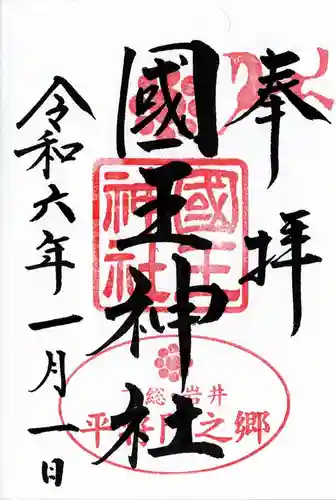 奉拝
國王神社
國王神社
総 岩井
平将門之郷
令和六年一月一日